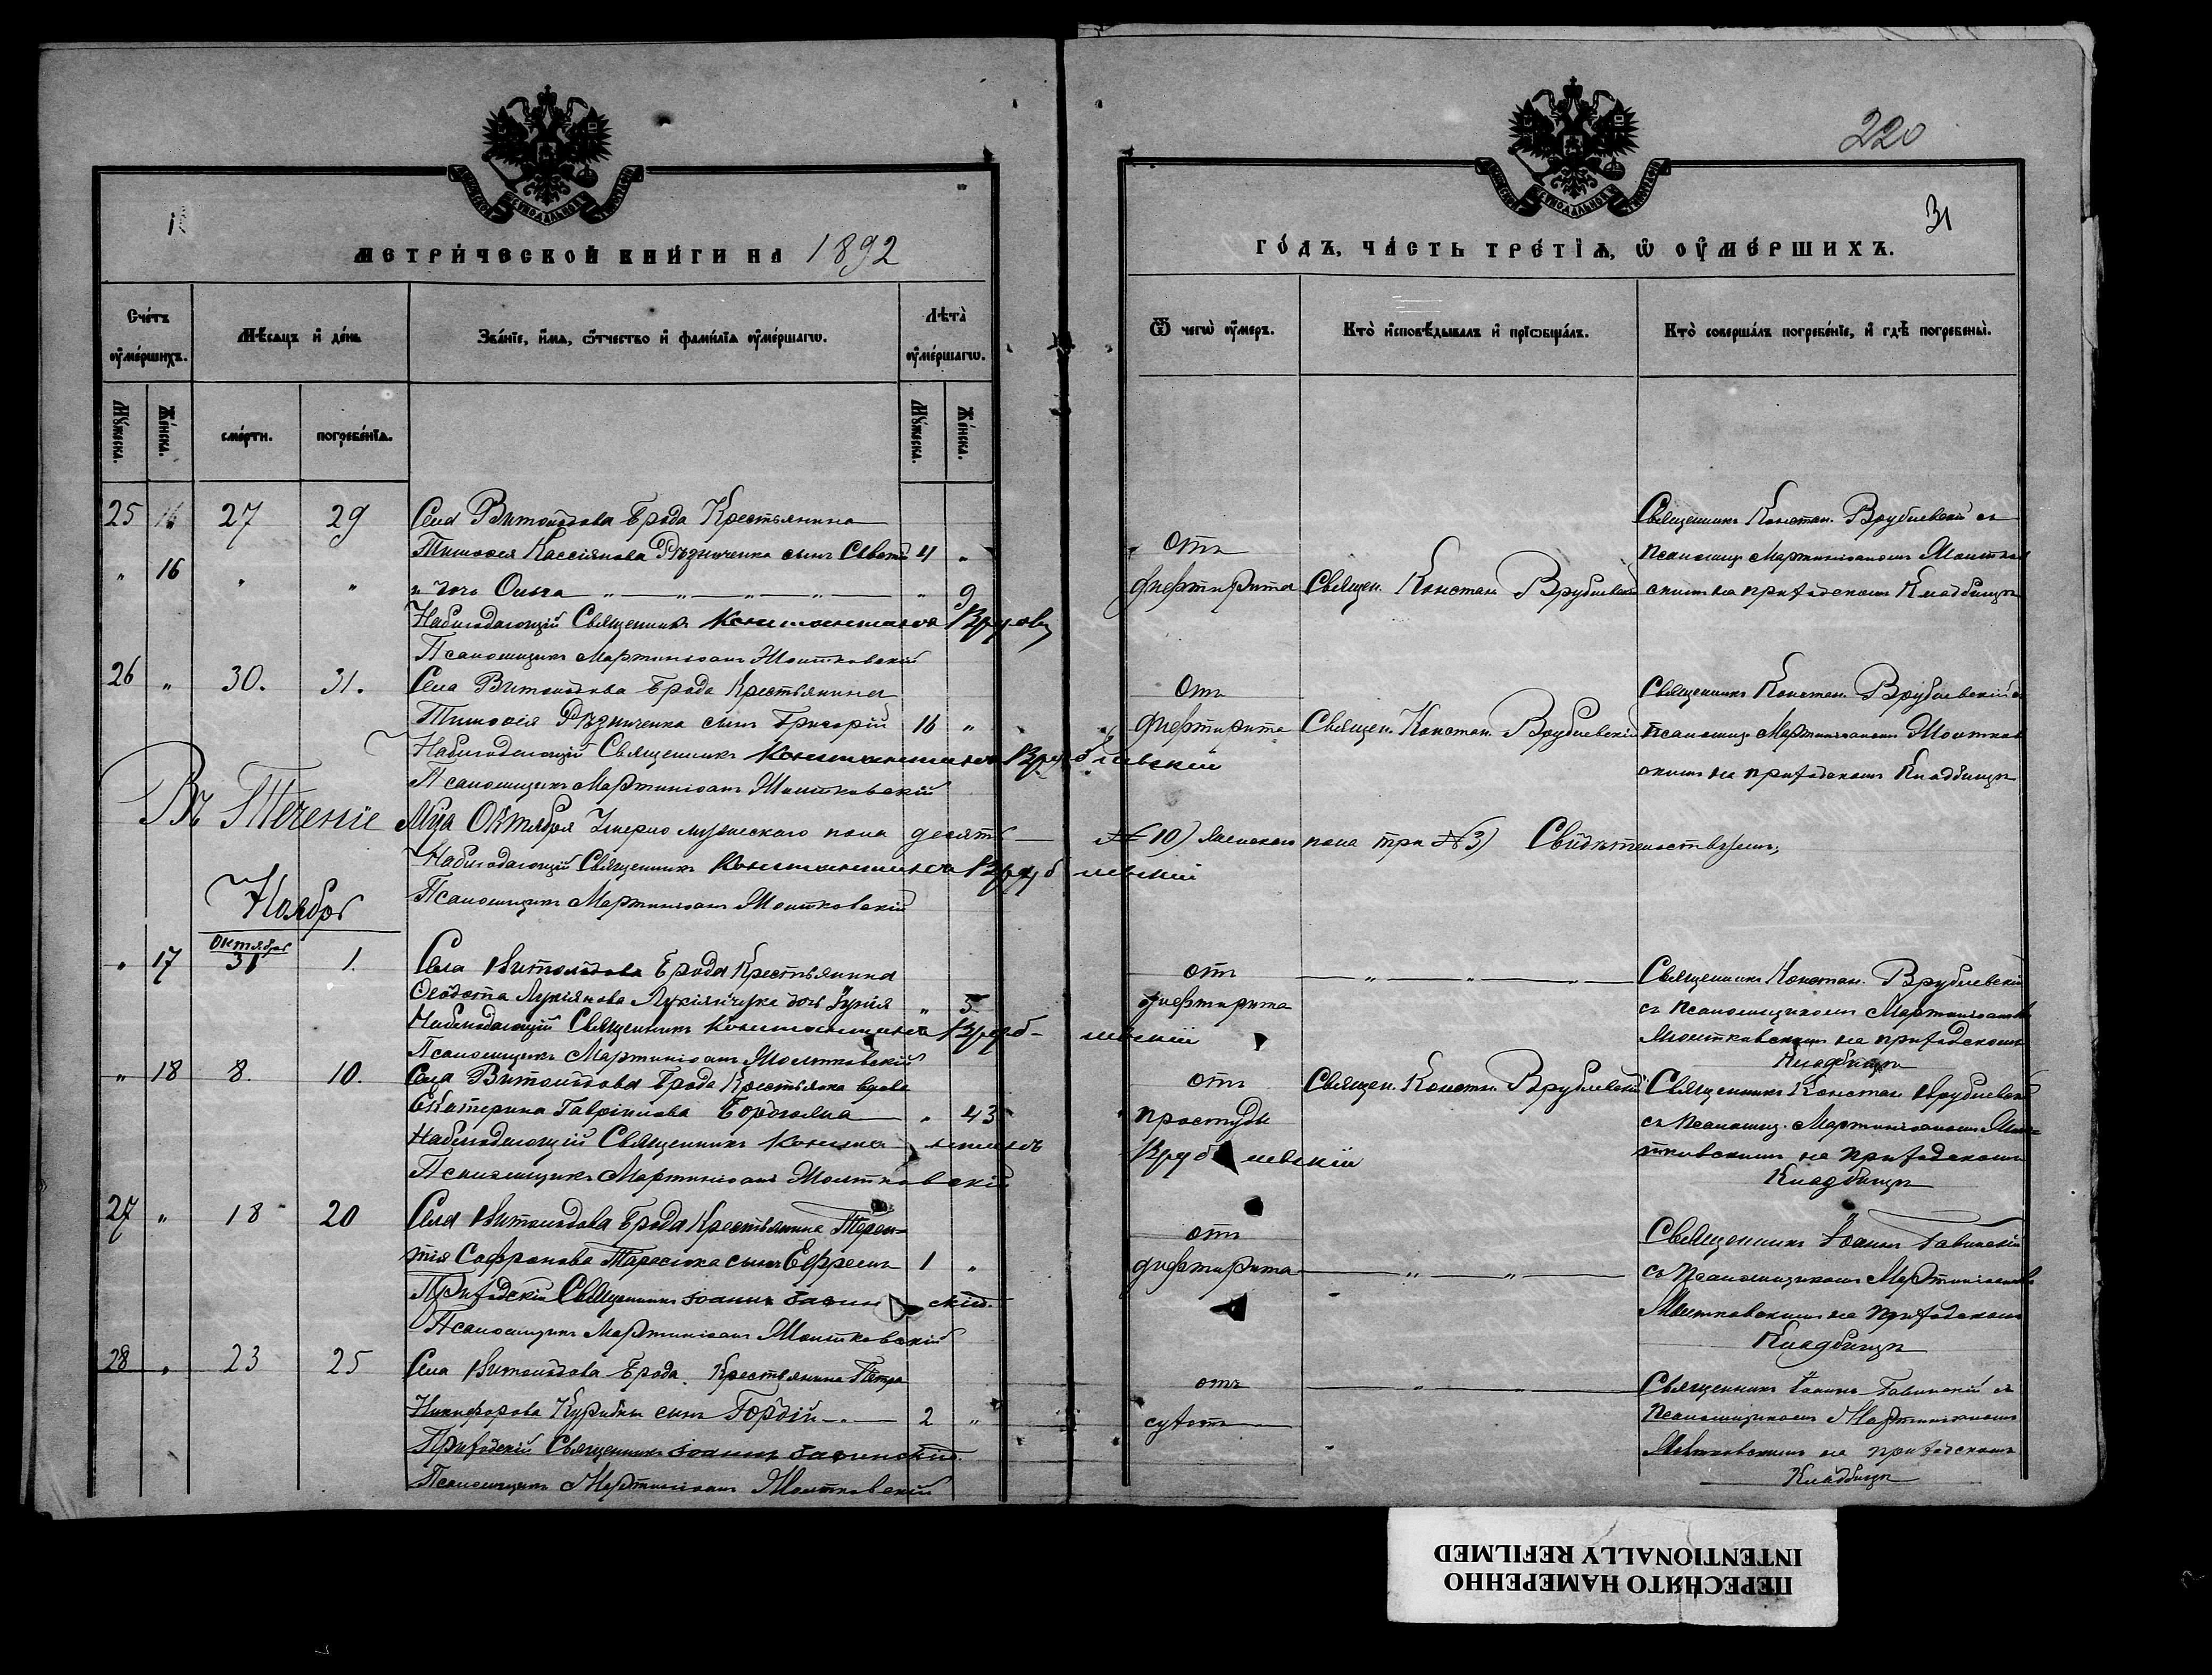 220
31
МЕТРИ́ЧЕСКОЙ КНИ́ГИ НА 1892
ГО́ДЪ, ЧА́СТЬ ТРЕ́ТІѦ, Ѿ ОУ҆МЕ́РШИХЪ.
Сче́тъ оу҆ме́ршихъ.
Мѣ́сѧцъ и҆ де́нь
Зва́нїе, и҆́мѧ, ѻ҆́тчество и҆ фами́лїѧ оу҆ме́ршагѡ.
Лѣ́та̀ оу҆ме́ршагѡ.
Ѿ чегѡ̀ оу҆́меръ.
Кто̀ и҆сповѣ́дывалъ и҆ прїѡбща́лъ.
Кто̀ соверша́лъ погребе́нїе, и҆ гдѣ̀ погребены̀.
Мꙋ́жеска.
Же́нска.
сме́рти.
погребе́нїѧ.
Мꙋ́жеска.
Же́нска.
25 16 27 29 Села Витольдова Брода Крестьянина
Тимофея Кассіянова Рѣзниченка сынъ 4 "
" 16 " " и дочь Ольга " " " " " 9
Наблюдающій Священникъ Константинъ
Псаломщикъ Мартиніанъ Молтковскій
отъ
дифтирита
Священ. Констан. Врублевскій
Священникъ Констан. Врублевскій съ
псаломщ. Мартиніаномъ Молтков
скимъ на приходскомъ Кладбищѣ
26 " 30. 31. Села Витольдова Брода Крестьянина
Тимофія Рѣзниченка сынъ Григорій 16 "
Наблюдающій Священникъ Константинъ Врублевскій
Псаломщикъ Мартиніанъ Молтковскій
отъ
дифтирита
Священ. Констан. Врублевскій
Священникъ Констан. Врублевскій съ
псаломщ. Мартиніаномъ Молтков
скимъ на приходскомъ Кладбищѣ
Въ Теченіе Мца Октября Умерло мужескаго пола десять № 10) женскаго пола три № 3) Свидѣтельствуемъ;
Наблюдающій Священникъ Константинъ Врублевскій
Псаломщикъ Мартиніанъ Молтковскій
Ноябрь
" 17 Октября 31 1. Села Витольдова Брода Крестьянина
Ѳеодота Лукіянова Лукіянчука дочь Іулія " 5
Наблюдающій Священникъ Константинъ Врублевскій
Псаломщикъ Мартиніанъ Молтковскій
отъ
дифтирита
Священникъ Констан. Врублевскій
съ псаломщикомъ Мартиніаномъ
Молтковскимъ на приходскомъ
Кладбищѣ
" 18 8. 10. Села Витольдова Брода Крестьянка вдова
Екатерина Гавріилова " 43
Наблюдающій Священникъ Константинъ Врублевскій
Псаломщикъ Мартиніанъ Молтковскій
отъ
простуды
Священ. Констан. Врублевскій
Священникъ Констан. Врублевскій
съ псаломщ. Мартиніаномъ Мол=
тковскимъ на приходскомъ
Кладбищѣ
27 " 18 20 Села Витольдова Брода Крестьянина Терен=
тія Софронова Тарасюка сынъ Ефремъ 1 "
Приходскій Священникъ Іоаннъ
Псаломщикъ Мартиніанъ Молтковскій
отъ
дифтирита
Священникъ Іоаннъ
съ псаломщикомъ Мартиніаномъ
Молтковскимъ на приходскомъ
Кладбищѣ
28 " 23 25 Села Витольдова Брода Крестьянина Петра
Никифорова сынъ Гордій 2 "
Приходскій Священникъ Іоаннъ
Псаломщикъ Мартиніанъ Молтковскій
отъ
сухотъ
Священникъ Іоаннъ съ
псаломщикомъ Мартиніаномъ
Молтковскимъ на приходскомъ
Кладбищѣ
ПЕРЕСНЯТО НАМЕРЕННО
INTENTIONALLY REFILMED